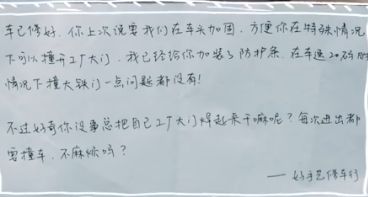 车已修好，你上次说要我们在车头加固，方便你在特殊情况
下可以撞开工厂大门，我已经给你加装了防护条，在车速20码的
情况下撞大铁门一点问题都没有！
不过好奇你没事总把自己工厂大门焊起来干嘛呢？每次进出都
要撞车，不麻烦吗？
—— 好手艺修车行